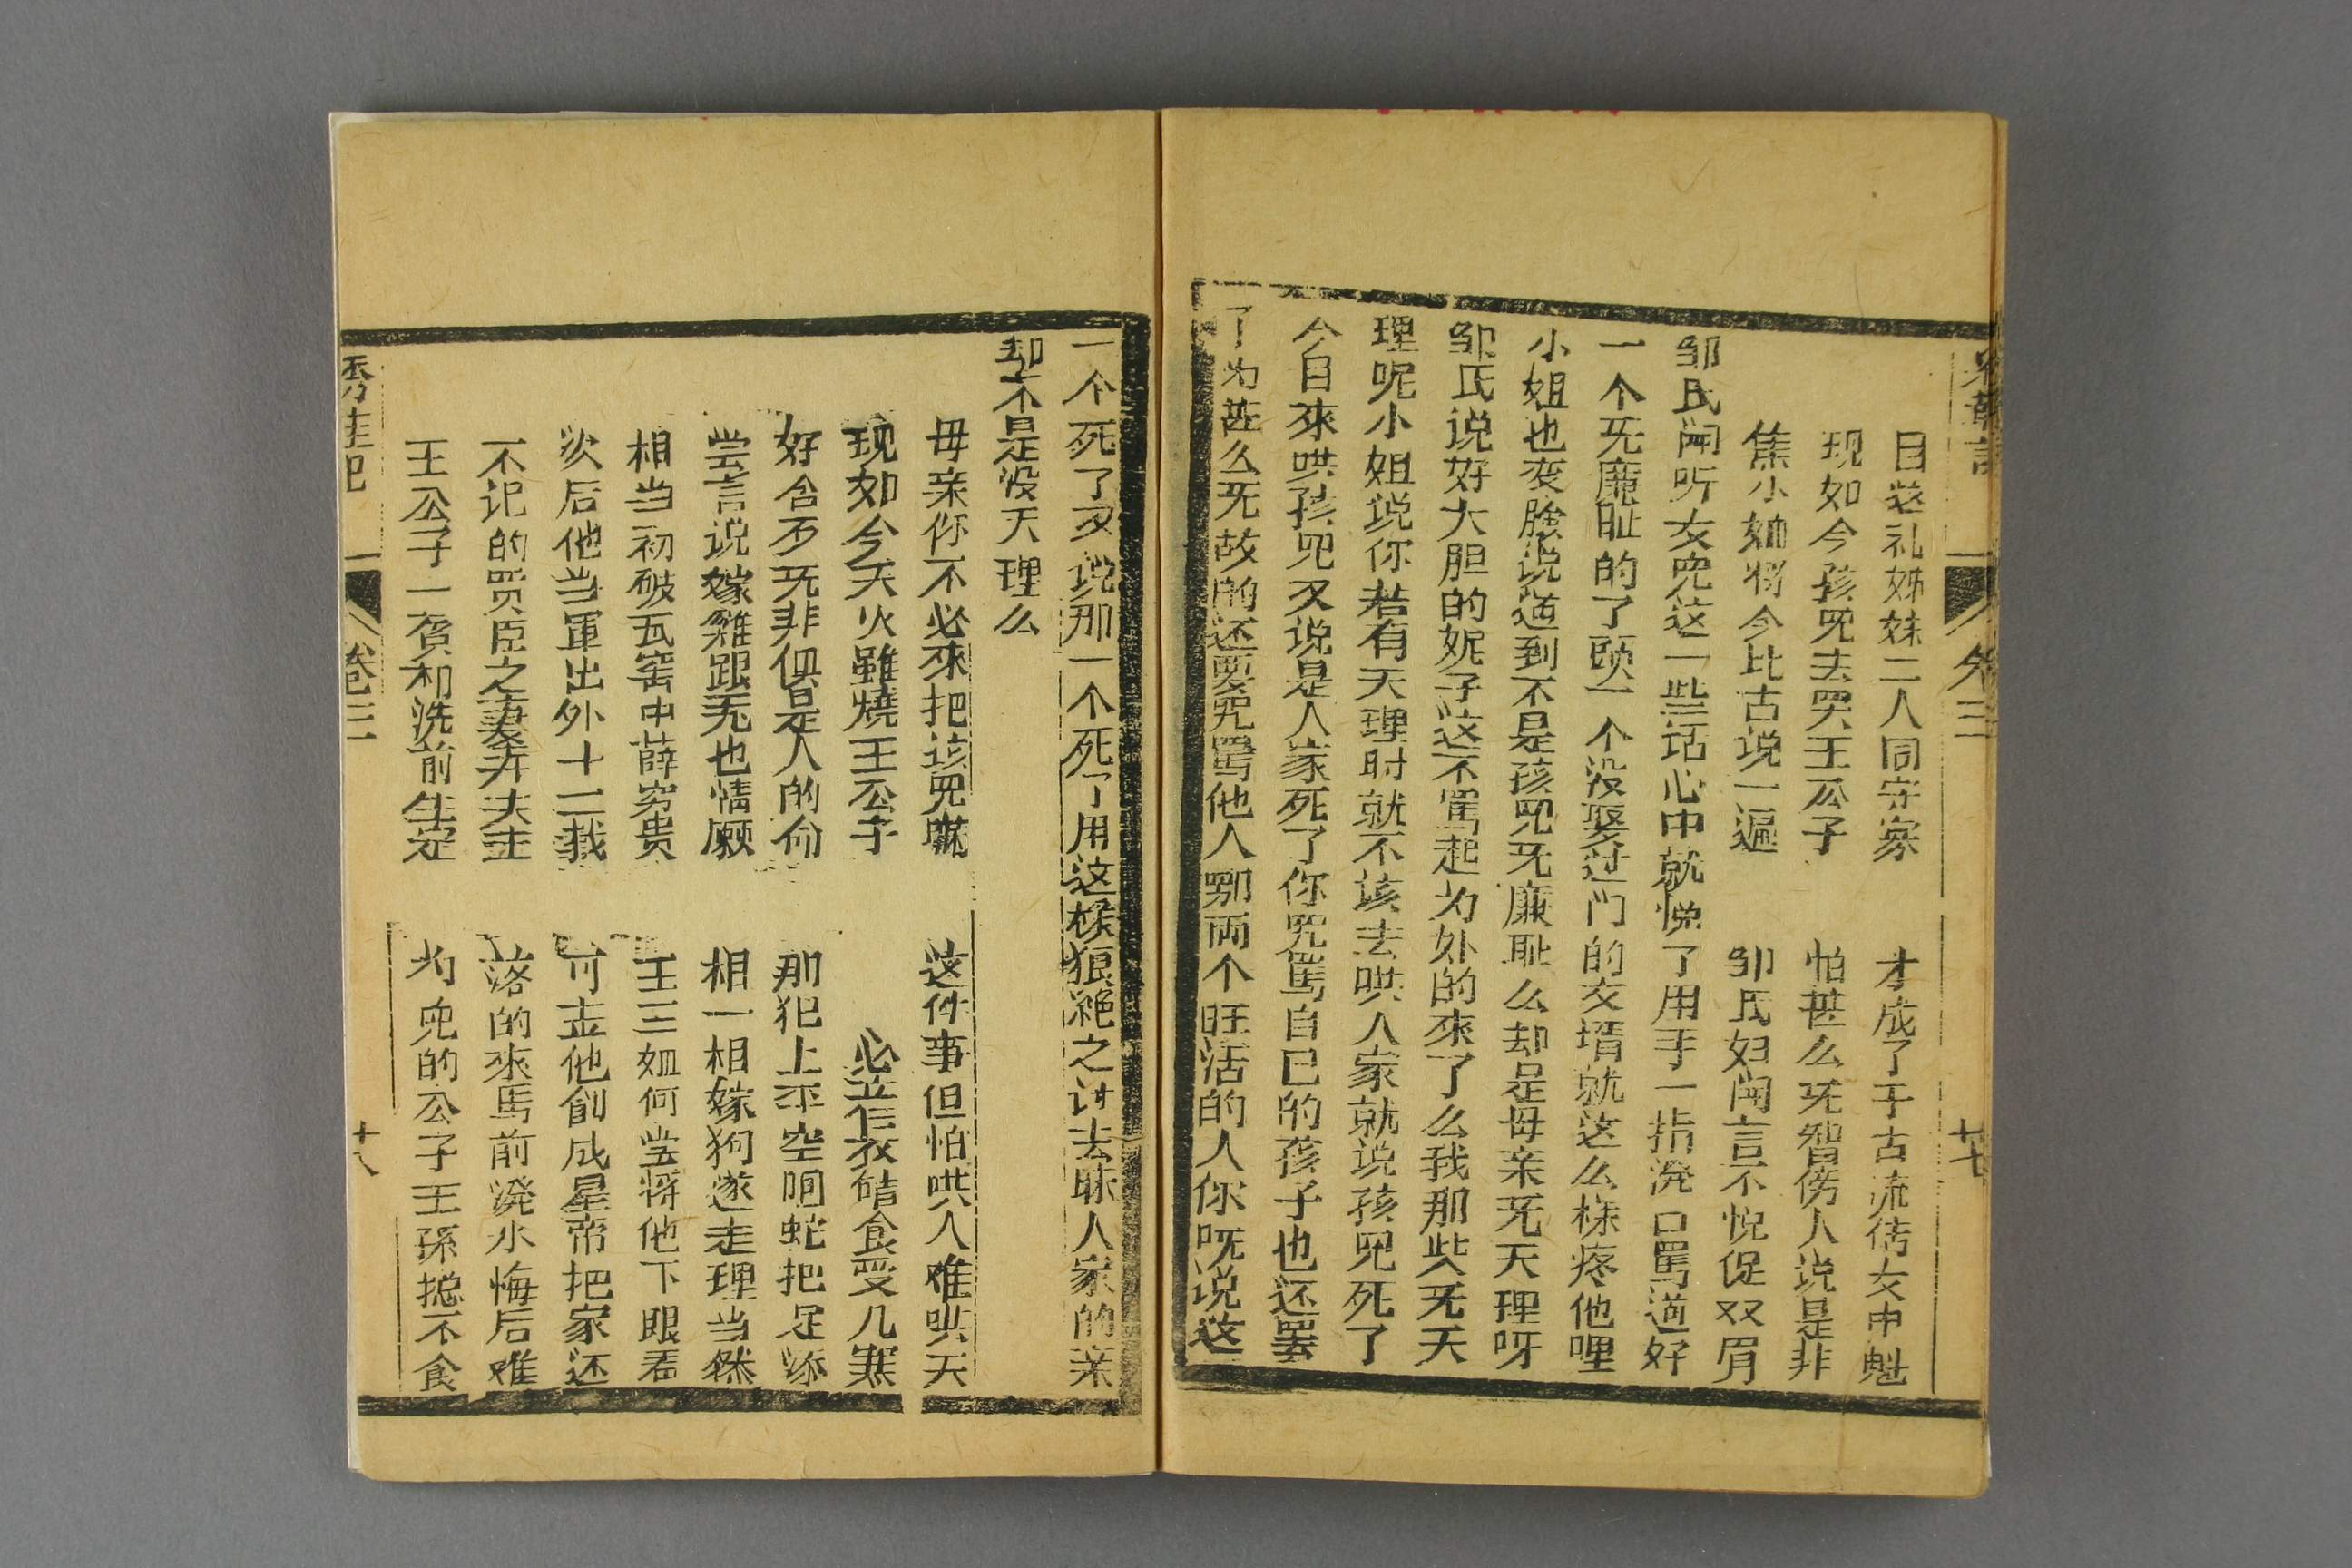 卷三
十七
目送礼姊妹二人同守寡 才成了于古流传女中魁
现如今孩兜去哭王公子 怕甚么旡智傍人说是非
焦小姐将今比古说一遍 邹氏妇闻言不悦促双眉
邹氏闻听女兜这一些话心中就悦了用手一指溌口骂道好
一个旡廉耻的了头一个没娶过门的女壻就这么様疼他哩
小姐也变脸说道到不是孩兜旡廉耻么却是母亲旡天理呀
邹氏说好大胆的妮子这不骂起为外的來了么我那些旡天
理呢小姐说你若有天理时就不该去哄人家就说孩兜死了
今日來哄孩兜又说是人家死了你咒骂自已的孩子也还罢
了为甚么旡故的还要咒骂他人哪两个旺活的人你呒说这
一个死了又说那一个死了用这様狼绝之计去昧人家的亲
却不是没天理么
毋亲你不必來把该兜嚇 这件事但怕哄人难哄天
现如今天火雖燒王公子 必竝乍衣碃食受几寒
好合不旡非俱是人的命 那犯上不空咱蛇把足添
尝言说嫁雞跟旡也情愿 相一相嫁狗遂走理当然
相当初破瓦窑中薛穷贵 王三姐何尝将他下眼看
次后他当軍出外十二载 可竝他創成星帝把家还
不记的买臣之妻弃夫主 落的來馬前溌水悔后难
王公子一贫和洗前生定 为兜的公子王孫揔不食
秀鞋记
卷三
十八